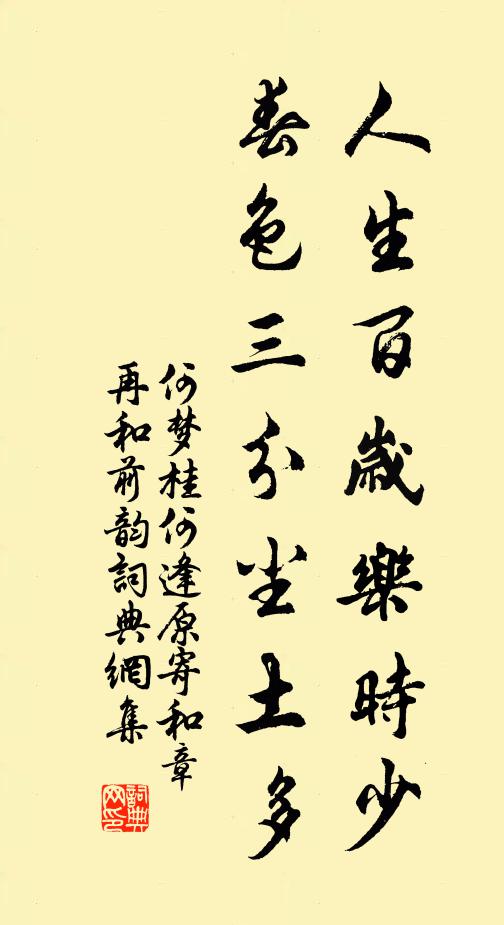 人生百歲樂時少
春色三分尘土多
何梦桂何逢原寄和章
再和前韵詞典網集
詞典
网印